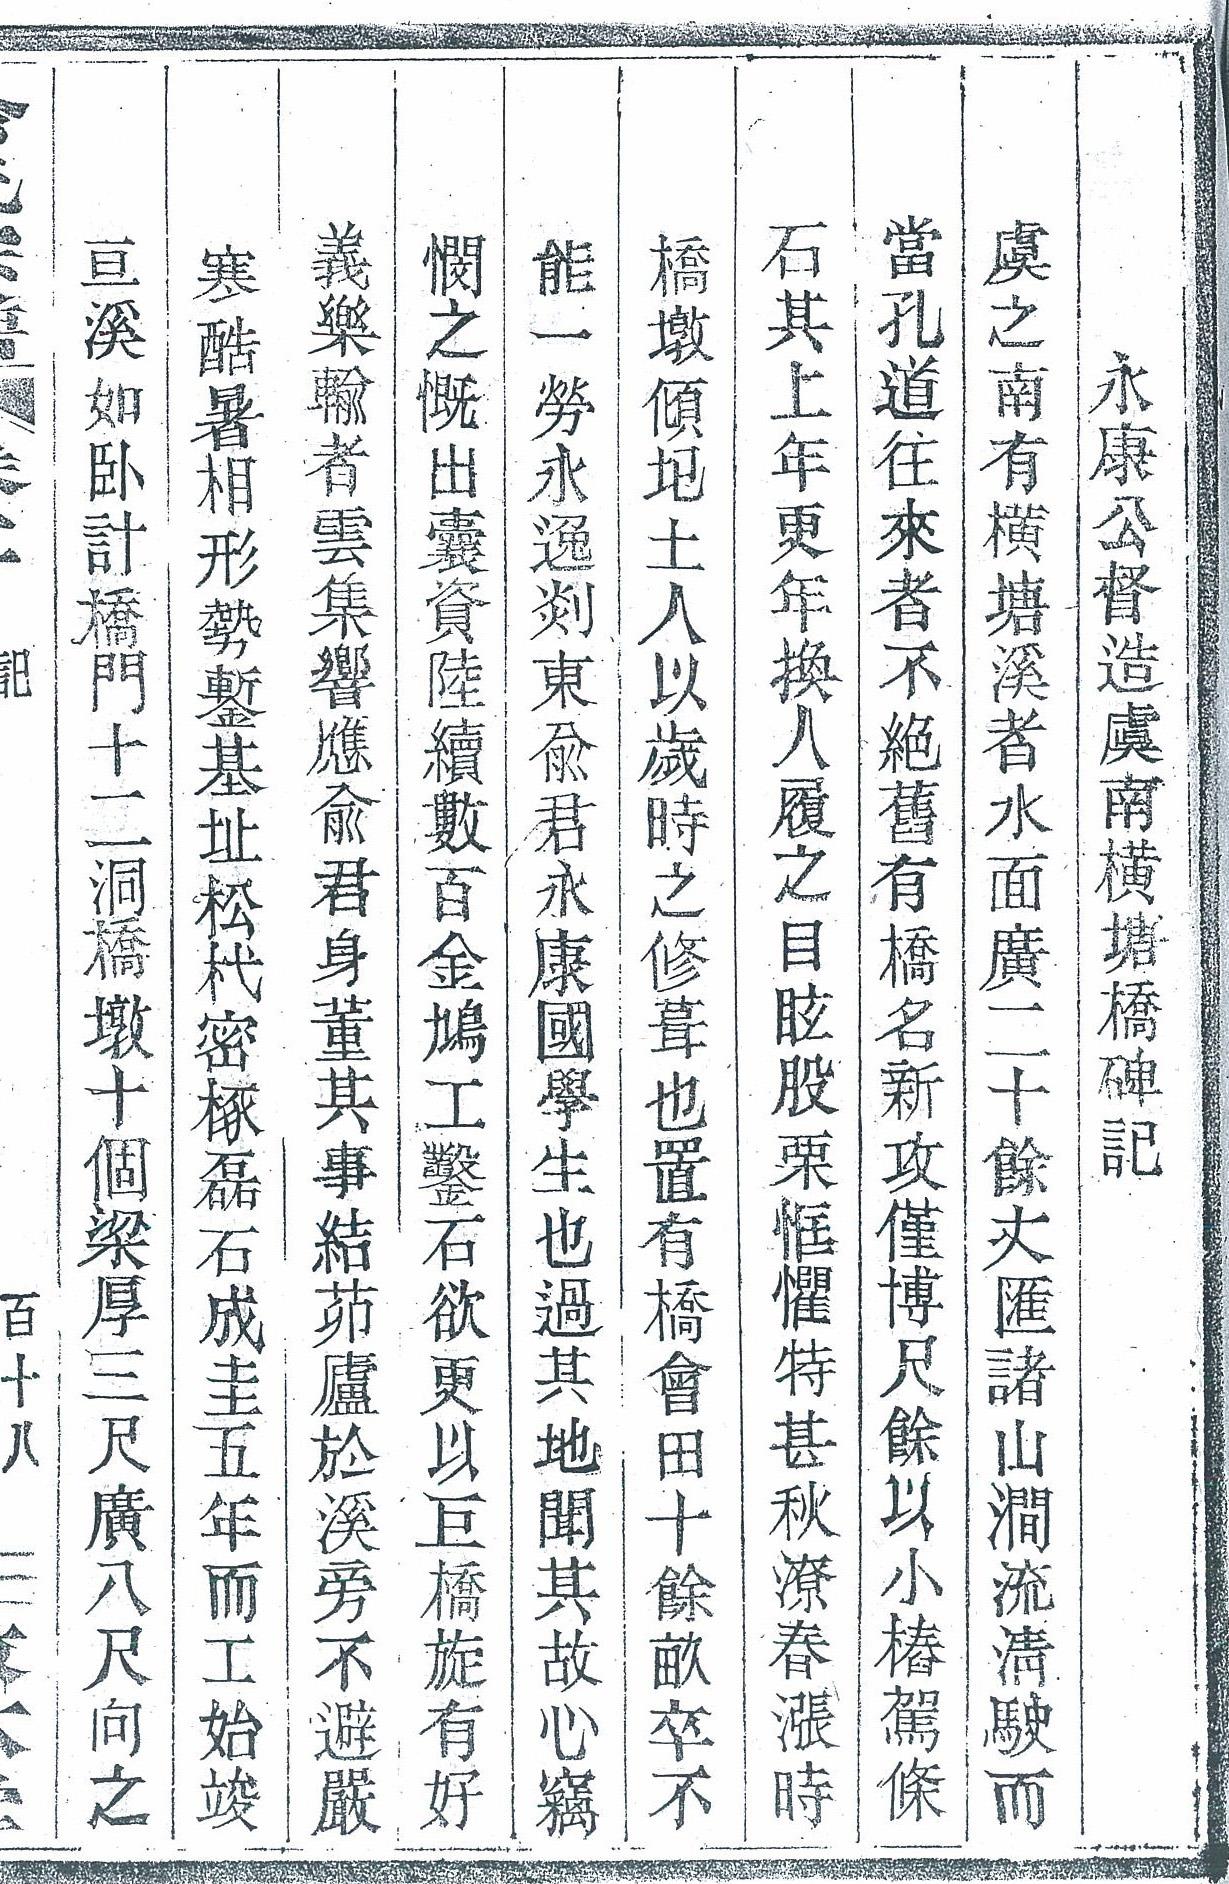 永康公督造虞南橫塘橋碑記
虞之南有橫塘溪者水面廣二十餘丈匯諸山澗流淸駛而
當孔道往來者不絕舊有橋名新攻僅博尺餘以小樁駕條
石其上年更年換人履之目眩股栗恇懼特甚秋潦春漲時
橋墩傾圯土人以歲時之修葺也置有橋會田十餘畝卒不
能一勞永逸剡東兪君永康國學生也過其地聞其故心竊
憫之慨出囊資陸續數百金鳩工鑿石欲更以巨橋旋有好
義樂輸者雲集響應兪君身董其事結茆廬於溪旁不避嚴
寒酷暑相形勢鏨基址松杙密椓磊石成圭五年而工始竣
亘溪如卧計橋門十二洞橋墩十個梁厚三尺廣八尺向之
記
百十八